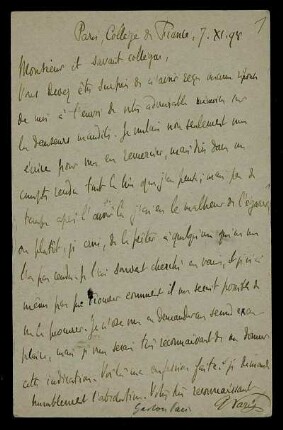 1
Paris, Collège de France, 7. XI. 98
Monsieur et savant collègue,
Vous devez être surpris de n'avoir reçu aucune réponse
de moi à l'envoi de votre admirable mémoire sur
les danseurs maudits. Je voulais non seulement vous
écrire pour vous en remercier, mais dans un
compte rendu tout le bien que j'en pense; mais peu de
temps après l'avoir lu j'ai eu le malheur de l'égarer,
ou plutôt, je crois, de le prêter à quelqu'un qui ne me
l'a pas rendu. Je l'ai souvent cherché en vain, et je n'ai
même pas pu trouver comment il me serait possible de
me le procurer. Je n'ose vous en demander un second exem-
plaire, mais je vous serais très reconnaissant de me donner
cette indication. Voilà ma confession faite: je demande
humblement l'absolution. Votre très reconnaissant
G Paris
Gaston Paris